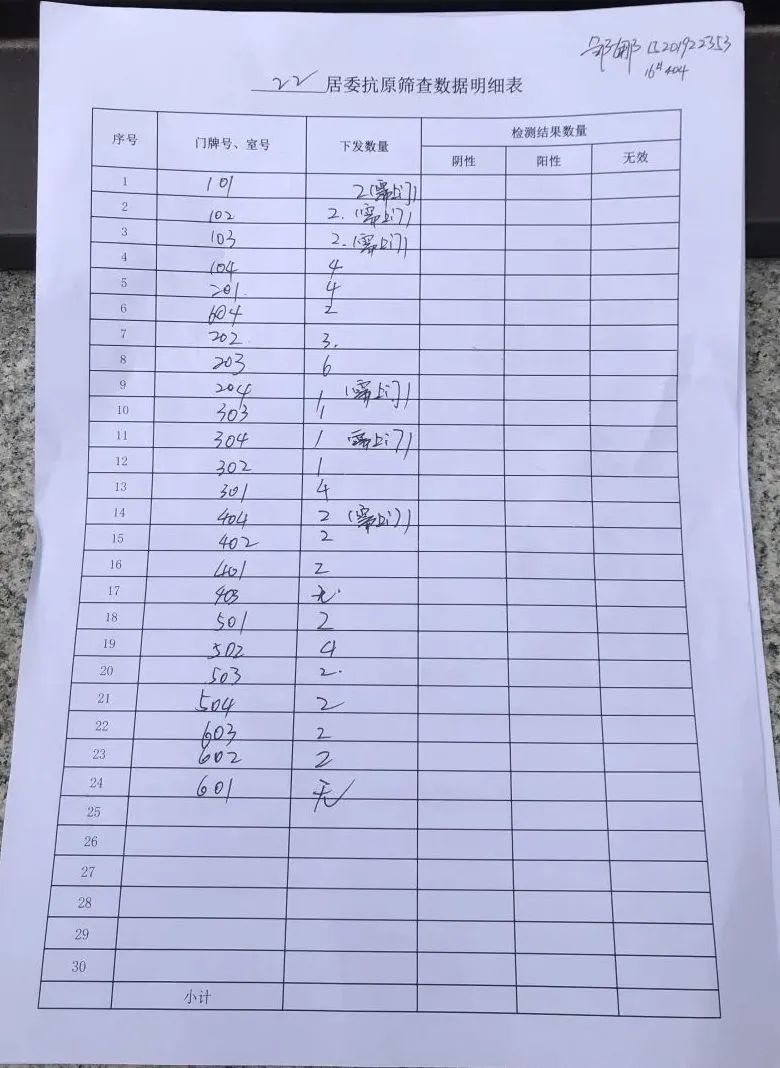 邹娜 13201922353
16# 404
22 居委抗原筛查数据明细表
序号 门牌号、室号 下发数量 检测结果数量
阴性 阳性 无效
1 101 2(需上门)
2 102 2.(需上门)
3 103 2.(需上门)
4 104 4
5 201. 4
6 604 2
7 202 3.
8 203 6
9 204 1 (需上门)
10 303 1
11 304 1 (需上门)
12 302 1
13 301 4
14 404 2 (需上门)
15 402 2
16 401 2
17 403 无
18 501 2
19 502 4
20 503 2.
21 504 2
22 603 2
23 602 2
24 601 无
25
26
27
28
29
30
小计